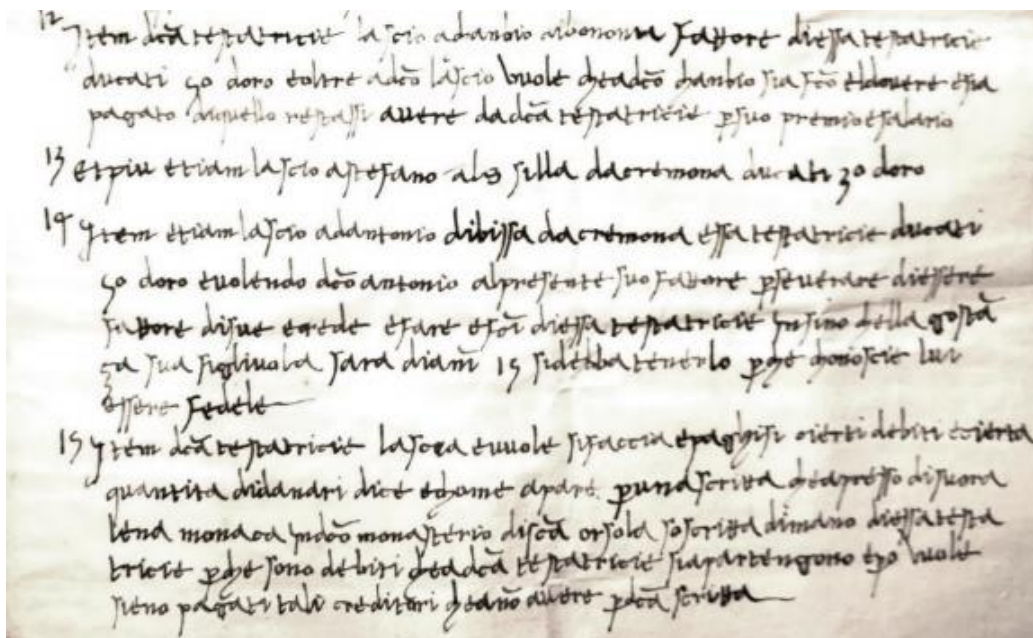 12 Item dcā testatricie lascio ad anbio da bononia fattore di essa testatricie
ducati 50 doro e oltre a dcō lascio vuole che a dcō chanbio sia fcō el dovere e sia
pagato di quello restassi avere da dcā testatricie p suo premio e salario
13 Et piu etiam lascio a stefano als silla da cremona ducati 30 doro
14 Item etiam lascio ad antonio di bissa da cremona essa testatricie ducati
50 doro e volendo dcō antonio al presente suo fattore pseverare di essere
fattore di sue erede e fare di essa testatricie in sino che la gostā
ça sua figlivola sara di anni 15 si debba tenerlo p che chonoscie lui
essere fedele
15 Item dcā testatricie lascia e vuole si faccia e paghisi cierti debiti e cierta
quantita di danari dice e chome apare p una scritta che apresso di suora
lena monaca in dcō monasterio di scā orsola soscritta di mano di essa testa
tricie p che sono debiti che a dcā testatricie si apartengono e pō vuole
sieno pagati tali creditori che anō avere p dcā scritta